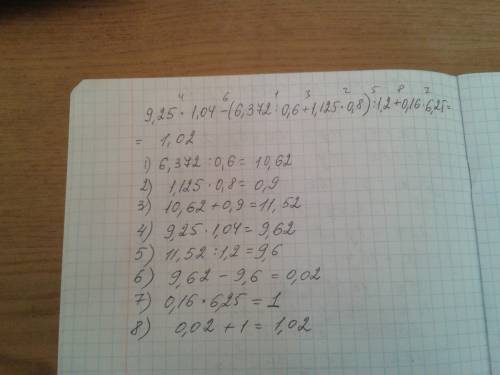 4 6 1 3 2 5 8 7
9,25 · 1,04 - (6,372 : 0,6 + 1,125 · 0,8) : 1,2 + 0,16 · 6,25 =
= 1,02
1) 6,372 : 0,6 = 10,62
2) 1,125 · 0,8 = 0,9
3) 10,62 + 0,9 = 11,52
4) 9,25 · 1,04 = 9,62
5) 11,52 : 1,2 = 9,6
6) 9,62 - 9,6 = 0,02
7) 0,16 · 6,25 = 1
8) 0,02 + 1 = 1,02